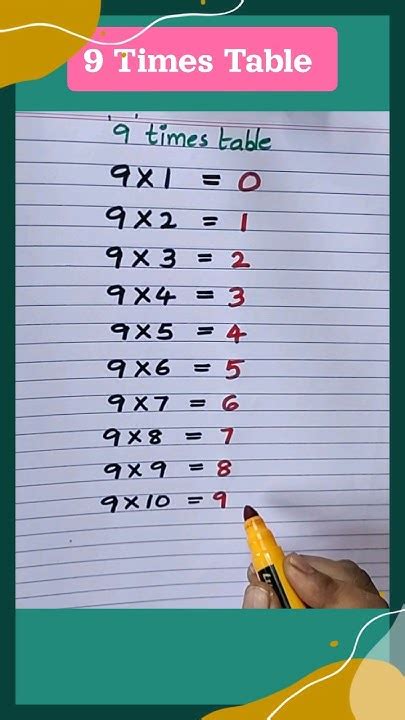 9 Times Table
'9' times table
9 X 1 = 0
9 X 2 = 1
9 X 3 = 2
9 X 4 = 3
9 X 5 = 4
9 X 6 = 5
9 X 7 = 6
9 X 8 = 7
9 X 9 = 8
9 X 10 = 9